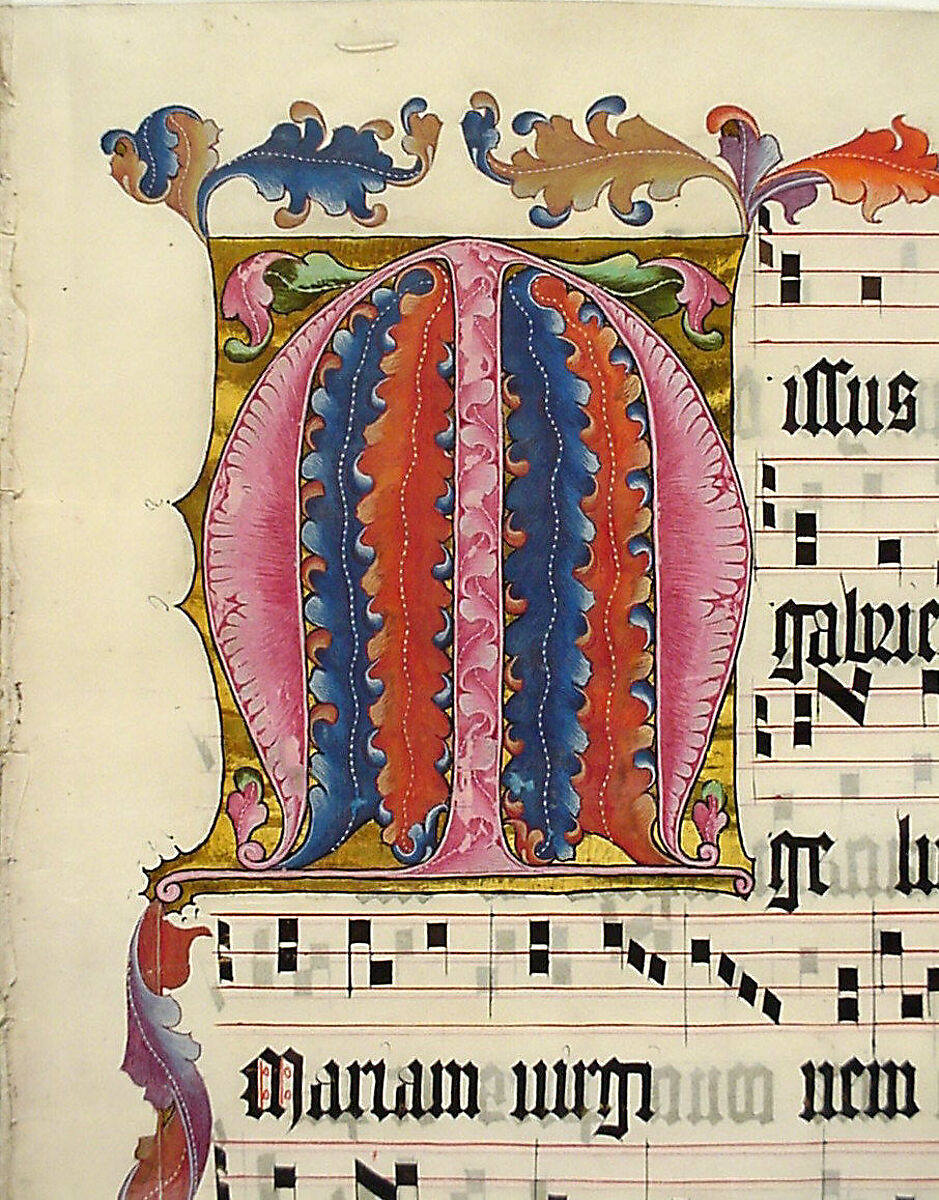 M
issus
gabrie
ge lu
Mariam uirgi nem